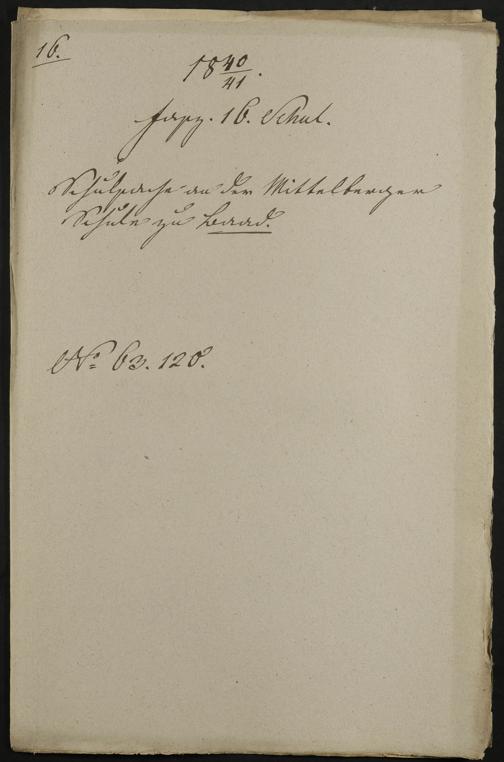 16.
18 40/41.
Fasz. 16. Schul.
Schulsache an der Mittelberger
Schule zu Baad.
No 63. 128.